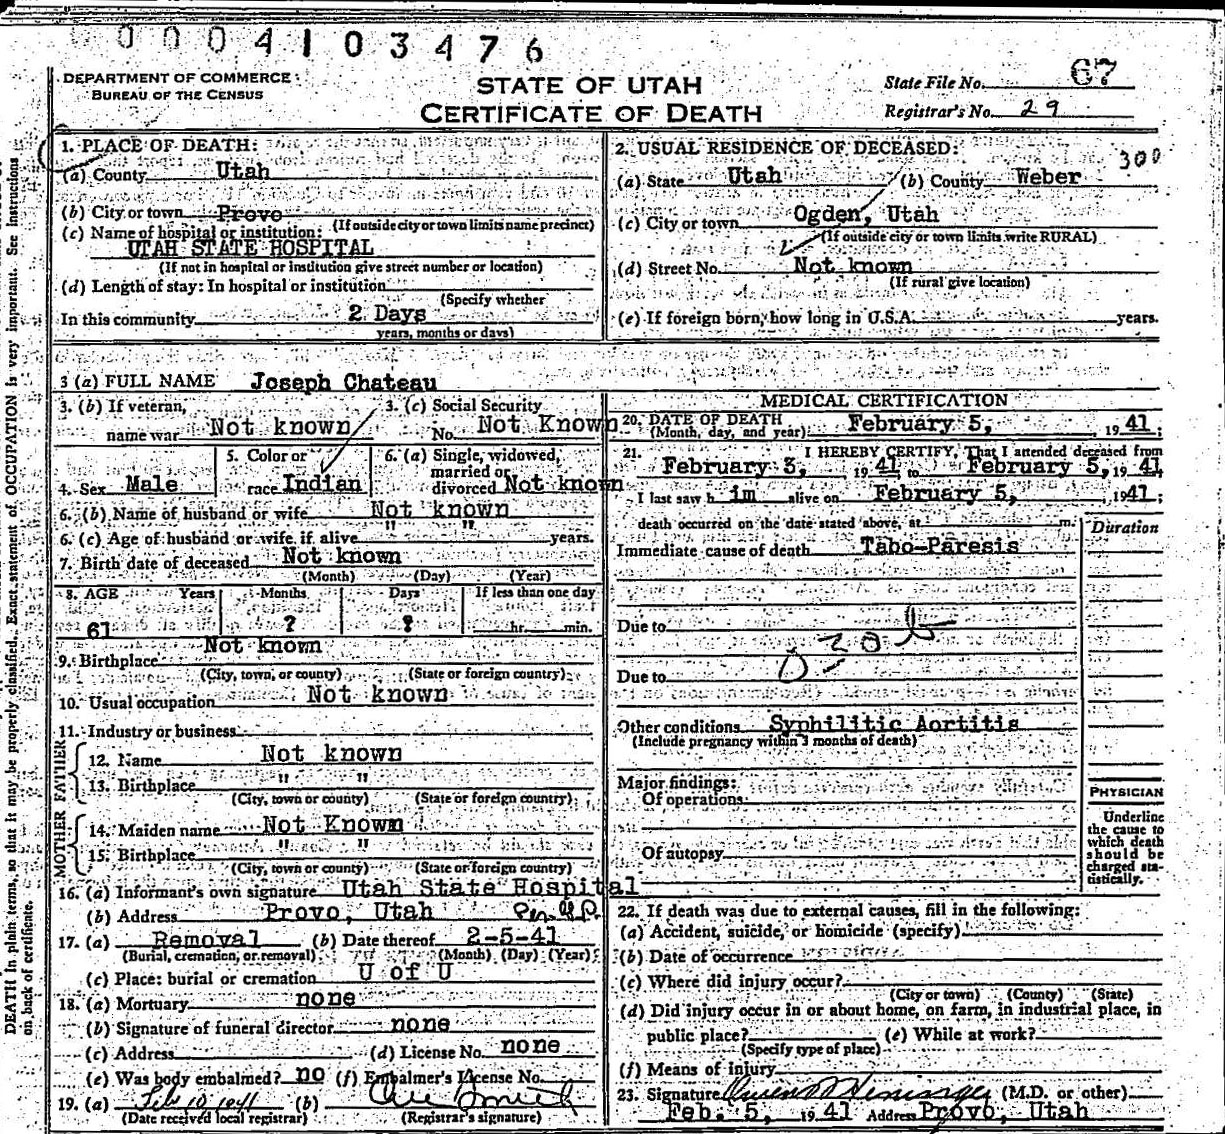 0004103476
DEPARTMENT OF COMMERCE
BUREAU OF THE CENSUS
STATE OF UTAH
CERTIFICATE OF DEATH
State File No. 67
Registrar's No. 29
1. PLACE OF DEATH:
(a) County Utah
(b) City or town Provo
(If outside city or town limits name precinct)
(c) Name of hospital or institution:
UTAH STATE HOSPITAL
(If not in hospital or institution give street number or location)
(d) Length of stay: In hospital or institution
(Specify whether
In this community 2 Days
years, months or days)
2. USUAL RESIDENCE OF DECEASED:
300
(a) State Utah (b) County Weber
(c) City or town Ogden, Utah
(If outside city or town limits write RURAL)
(d) Street No. Not known
(If rural give location)
(e) If foreign born, how long in U.S.A. years.
3 (a) FULL NAME Joseph Chateau
3. (b) If veteran,
name war Not known
3. (c) Social Security
No. Not Known
4. Sex Male
5. Color or
race Indian
6. (a) Single, widowed,
married or
divorced Not known
6. (b) Name of husband or wife Not known
6. (c) Age of husband or wife if alive " " years.
7. Birth date of deceased Not known
(Month) (Day) (Year)
8. AGE Years Months Days If less than one day
61 ? ? hr. min.
9. Birthplace Not known
(City, town, or county) (State or foreign country)
10. Usual occupation Not known
11. Industry or business
FATHER
12. Name Not known
13. Birthplace " "
(City, town or county) (State or foreign country)
MOTHER
14. Maiden name Not Known
15. Birthplace " "
(City, town or county) (State or foreign country)
16. (a) Informant's own signature Utah State Hospital
(b) Address Provo, Utah Per
17. (a) Removal (b) Date thereof 2-5-41
(Burial, cremation, or removal) (Month) (Day) (Year)
(c) Place: burial or cremation U of U
18. (a) Mortuary none
(b) Signature of funeral director none
(c) Address (d) License No. none
(e) Was body embalmed? no (f) Embalmer's License No.
19. (a) Feb 10 1941 (b)
(Date received local registrar) (Registrar's signature)
MEDICAL CERTIFICATION
20. DATE OF DEATH
(Month, day, and year): February 5, 1941;
21. I HEREBY CERTIFY, That I attended deceased from
February 3, 1941 to February 5, 1941
I last saw h im alive on February 5, 1941;
death occurred on the date stated above, at m.
Duration
Immediate cause of death Tabo-Paresis
Due to
Due to
Other conditions Syphilitic Aortitis
(Include pregnancy within 3 months of death)
Major findings:
Of operations
Of autopsy
PHYSICIAN
Underline
the cause to
which death
should be
charged sta-
tistically.
22. If death was due to external causes, fill in the following:
(a) Accident, suicide, or homicide (specify)
(b) Date of occurrence
(c) Where did injury occur?
(City or town) (County) (State)
(d) Did injury occur in or about home, on farm, in industrial place, in
public place? (e) While at work?
(Specify type of place)
(f) Means of injury
23. Signature (M.D. or other)
Feb. 5, 1941 Address Provo, Utah
DEATH in plain terms, so that it may be properly classified. Exact statement of OCCUPATION is very important. See instructions
on back of certificate.